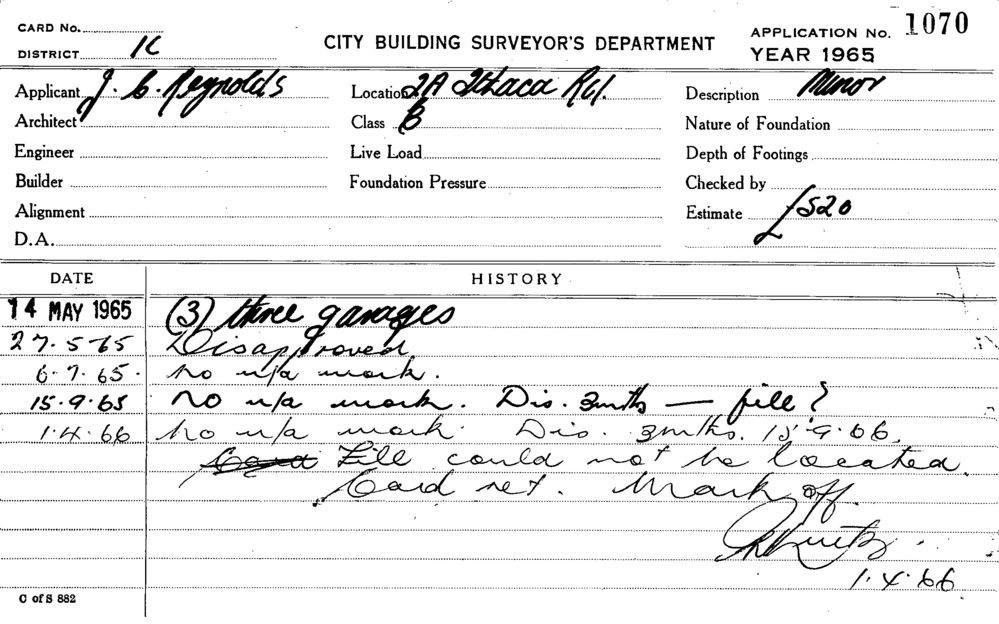 CARD No. CITY BUILDING SURVEYOR'S DEPARTMENT APPLICATION No. 1070
DISTRICT 1C YEAR 1965
Applicant J. C. Reynolds Location 2A Ithaca Rd. Description Minor
Architect Class B Nature of Foundation
Engineer Live Load Depth of Footings
Builder Foundation Pressure Checked by
Alignment Estimate £520
D.A.
DATE HISTORY
14 MAY 1965 (3) three garages
27.5.65 Disapproved.
6.7.65. No u/a work.
15.9.65 No u/a work. Dis. 3mths — fill?
1.4.66 No u/a work. Dis. 3mths. 15.9.66.
Card Fill could not be located.
Card ret. Mark off.
1.4.66
C of S 882